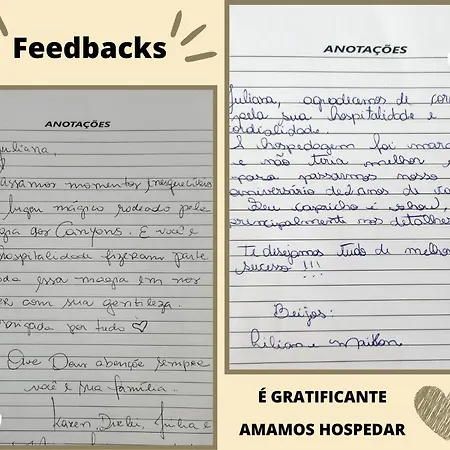 Feedbacks
ANOTAÇÕES
Juliana,
passamos momentos inesquecíveis
lugar mágico rodeado pela
dos Canyons. E você e
hospitalidade fizeram parte
essa magia em nos
com sua gentileza.
obrigada por tudo ♡
Que Deus abençõe sempre
você e sua família.
Karen, Júlia e
ANOTAÇÕES
Juliana, agradecemos de
pela sua hospitalidade e
cordialidade.
A hospedagem foi
e não teria melhor
para passarmos nosso
aniversário de 2 anos de
Seu capricho é
principalmente nos detalhes
Te desejamos tudo de melhor
sucesso !!!
Beijos:
Liliane e
É GRATIFICANTE
AMAMOS HOSPEDAR